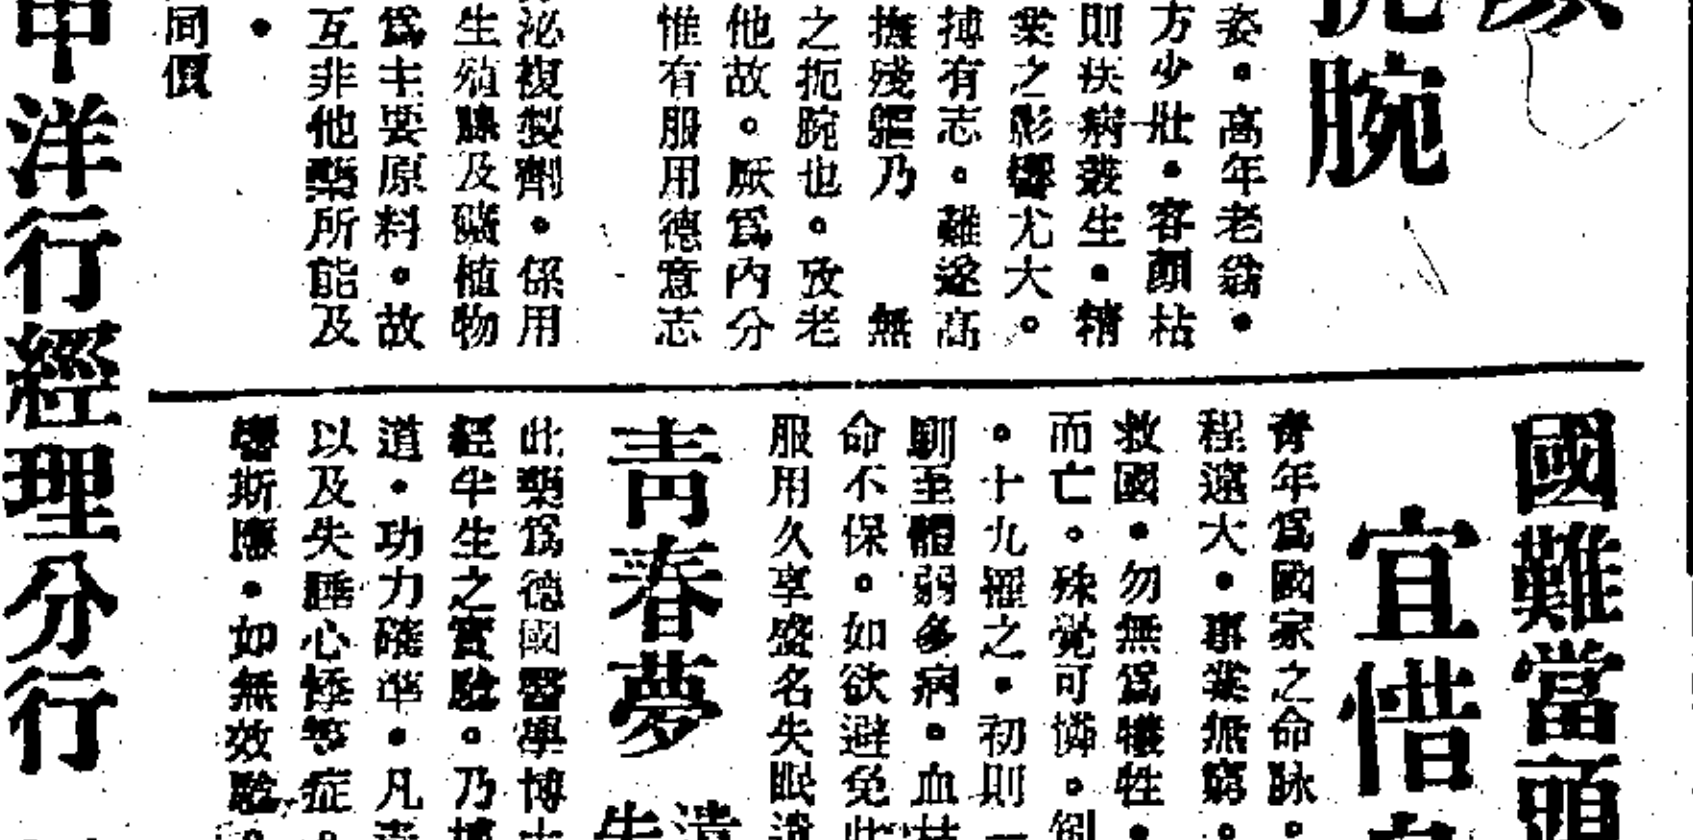 扼腕
姿。高年老翁。
方少壯。容顏枯
則疾病叢生。精
業之影響尤大。
搏有志。難遂高
撫殘軀乃　無
之扼腕也。攷老
他故。厥爲內分
惟有服用德意志
泌複製劑。係用
生殖腺及礦植物
爲主要原料。故
互非他藥所能及
。
同價
國難當頭
宜惜
青年爲國家之命脉。
程遠大。事業無窮。
救國。勿無爲犧牲。
而亡。殊覺可憐。
。十九罹之。初則一
馴至體弱多病。血
命不保。如欲避免此
服用久享盛名失眠遺
青春夢
此藥爲德國醫學博士
經半生之實驗。乃
道。功力確準。凡
以及失睡心悸等症。
響斯應。如無效驗。
洋行經理分行